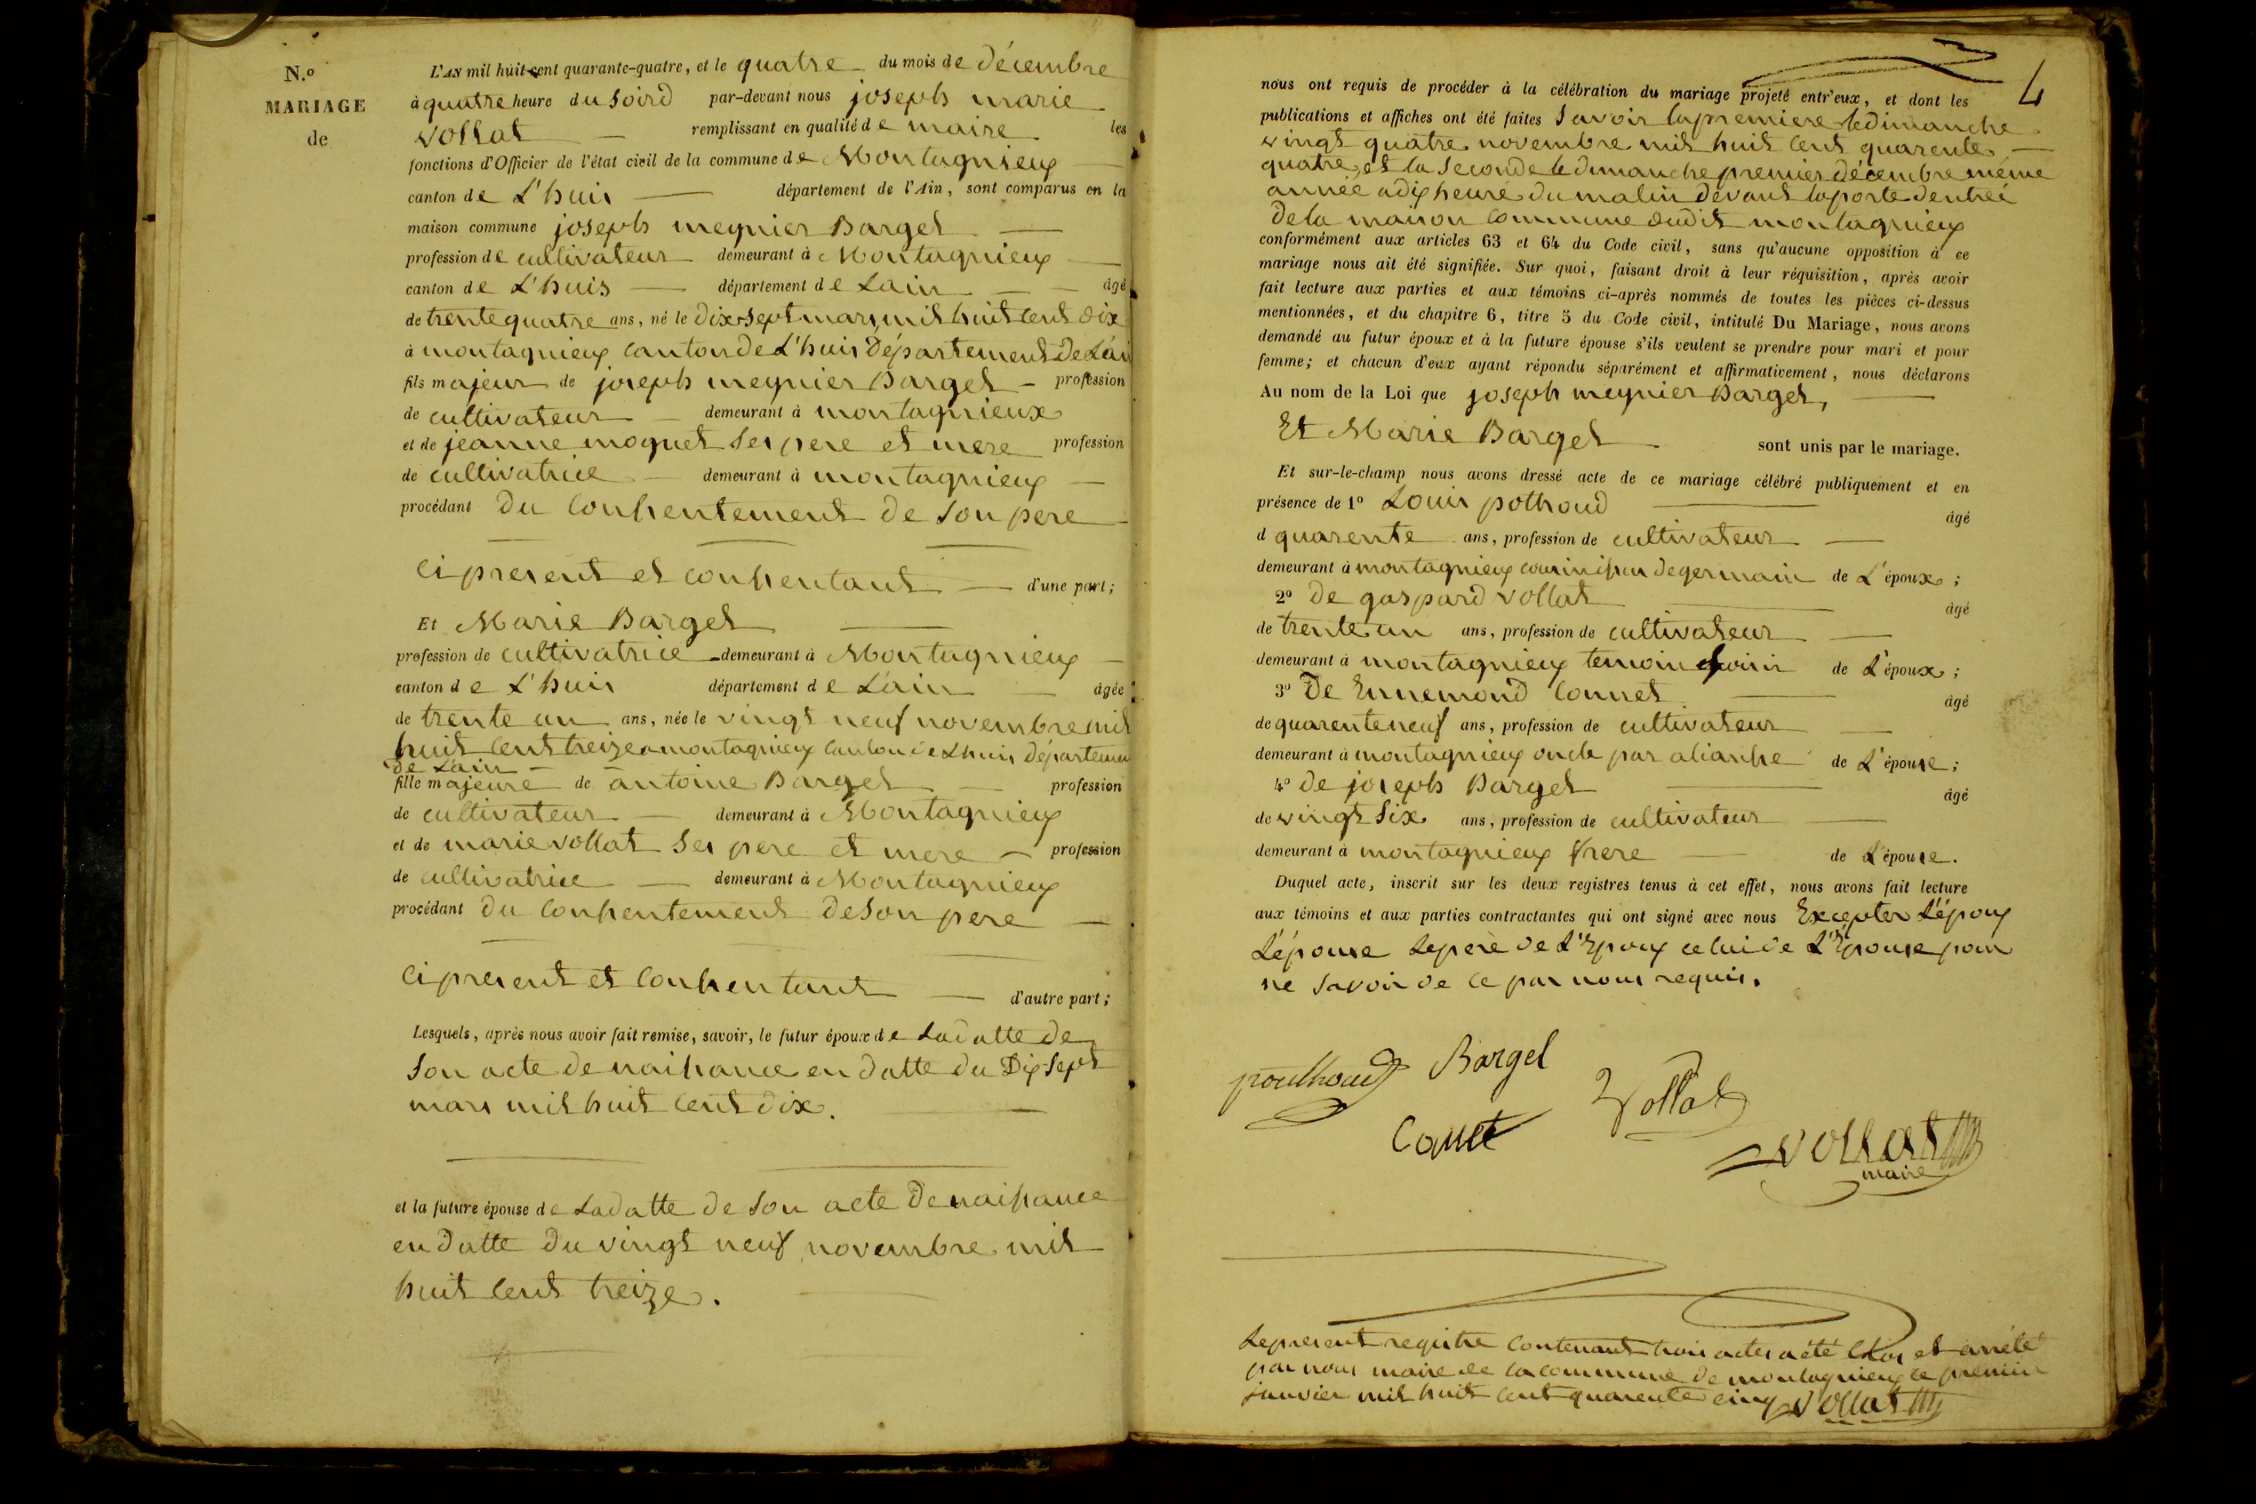 N.o
MARIAGE
de
L'AN mil huit cent quarante-quatre, et le quatre du mois de décembre
à quatre heure du Soird par-devant nous joseph marie
vollat remplissant en qualité de maire les
fonctions d'Officier de l'état civil de la commune de Montagnieux
canton de L'huis département de l'Ain, sont comparus en la
maison commune joseph meynier Barget
profession de cultivateur demeurant à Montagnieux
canton de L'huis département de Lain âgé
de trente quatre ans, né le dix sept mars mil huit cent dix
à montagnieux canton de L'huis département de Lain
fils majeur de joseph meynier Barget profession
de cultivateur demeurant à montagnieux
et de jeanne moguet Ses pere et mere profession
de cultivatrice demeurant à montagnieux
procédant du Conhentement de Son pere
Ci present et conhentant d'une part;
Et Marie Barget
profession de cultivatrice demeurant à Montagnieux
canton de L'huis département de Lain âgée
de trente un ans, née le vingt neuf novembre mil
huit cent treize a montagnieux canton de Lhuis départemen
de Lain
fille majeure de antoine Barget profession
de cultivateur demeurant à Montagnieux
et de marie vollat Ses pere et mere profession
de cultivatrice demeurant à Montagnieux
procédant du Conhentement de Son pere
Ci present et Conhentant d'autre part;
Lesquels, après nous avoir fait remise, savoir, le futur époux de Ladatte de
Son acte de naihance en datte du Dix Sept
mars mil huit cent dix.
et la future épouse de Ladatte de Son acte de naihance
en datte du vingt neuf novembre mil
huit cent treize.
4
nous ont requis de procéder à la célébration du mariage projeté entr'eux, et dont les
publications et affiches ont été faites Savoir la premiere le dimanche
vingt quatre novembre mil huit cent quarente
quatre et la Seconde le dimanche premier décembre même
année a dix heure du matin devant la porte dentreé
de la maison commune dudit montagnieux
conformément aux articles 63 et 64 du Code civil, sans qu'aucune opposition à ce
mariage nous ait été signifiée. Sur quoi, faisant droit à leur réquisition, après avoir
fait lecture aux parties et aux témoins ci-après nommés de toutes les pièces ci-dessus
mentionnées, et du chapitre 6, titre 5 du Code civil, intitulé Du Mariage, nous avons
demandé au futur époux et à la future épouse s'ils veulent se prendre pour mari et pour
femme; et chacun d'eux ayant répondu séparément et affirmativement, nous déclarons
Au nom de la Loi que joseph meynier Barget,
Et Marie Barget sont unis par le mariage.
Et sur-le-champ nous avons dressé acte de ce mariage célébré publiquement et en
présence de 1o Louis pothoud âgé
d quarente ans, profession de cultivateur
demeurant à montagnieux cousin de germain de L'époux;
2o de gaspard vollat âgé
de trente un ans, profession de cultivateur
demeurant à montagnieux temoin de L'époux;
3o De Ennemond Connet âgé
de quarente neuf ans, profession de cultivateur
demeurant à montagnieux oncle par alianhe de L'épouse;
4o de joseph Barget âgé
de vingt Six ans, profession de cultivateur
demeurant à montagnieux frere de L'épouse.
Duquel acte, inscrit sur les deux registres tenus à cet effet, nous avons fait lecture
aux témoins et aux parties contractantes qui ont signé avec nous Excepter L'époux
L'épouse Le pere de L'Epoux celui de L'Epouse pour
ne Savoir de ce par nous requis.
poulhoud Bargel Vollat
Connet
vollat
maire
Le present registre Contenant trois actes a été Clos et arrêté
par nous maire de la commune de montagnieux ce premier
janvier mil huit cent quarente cinq vollat